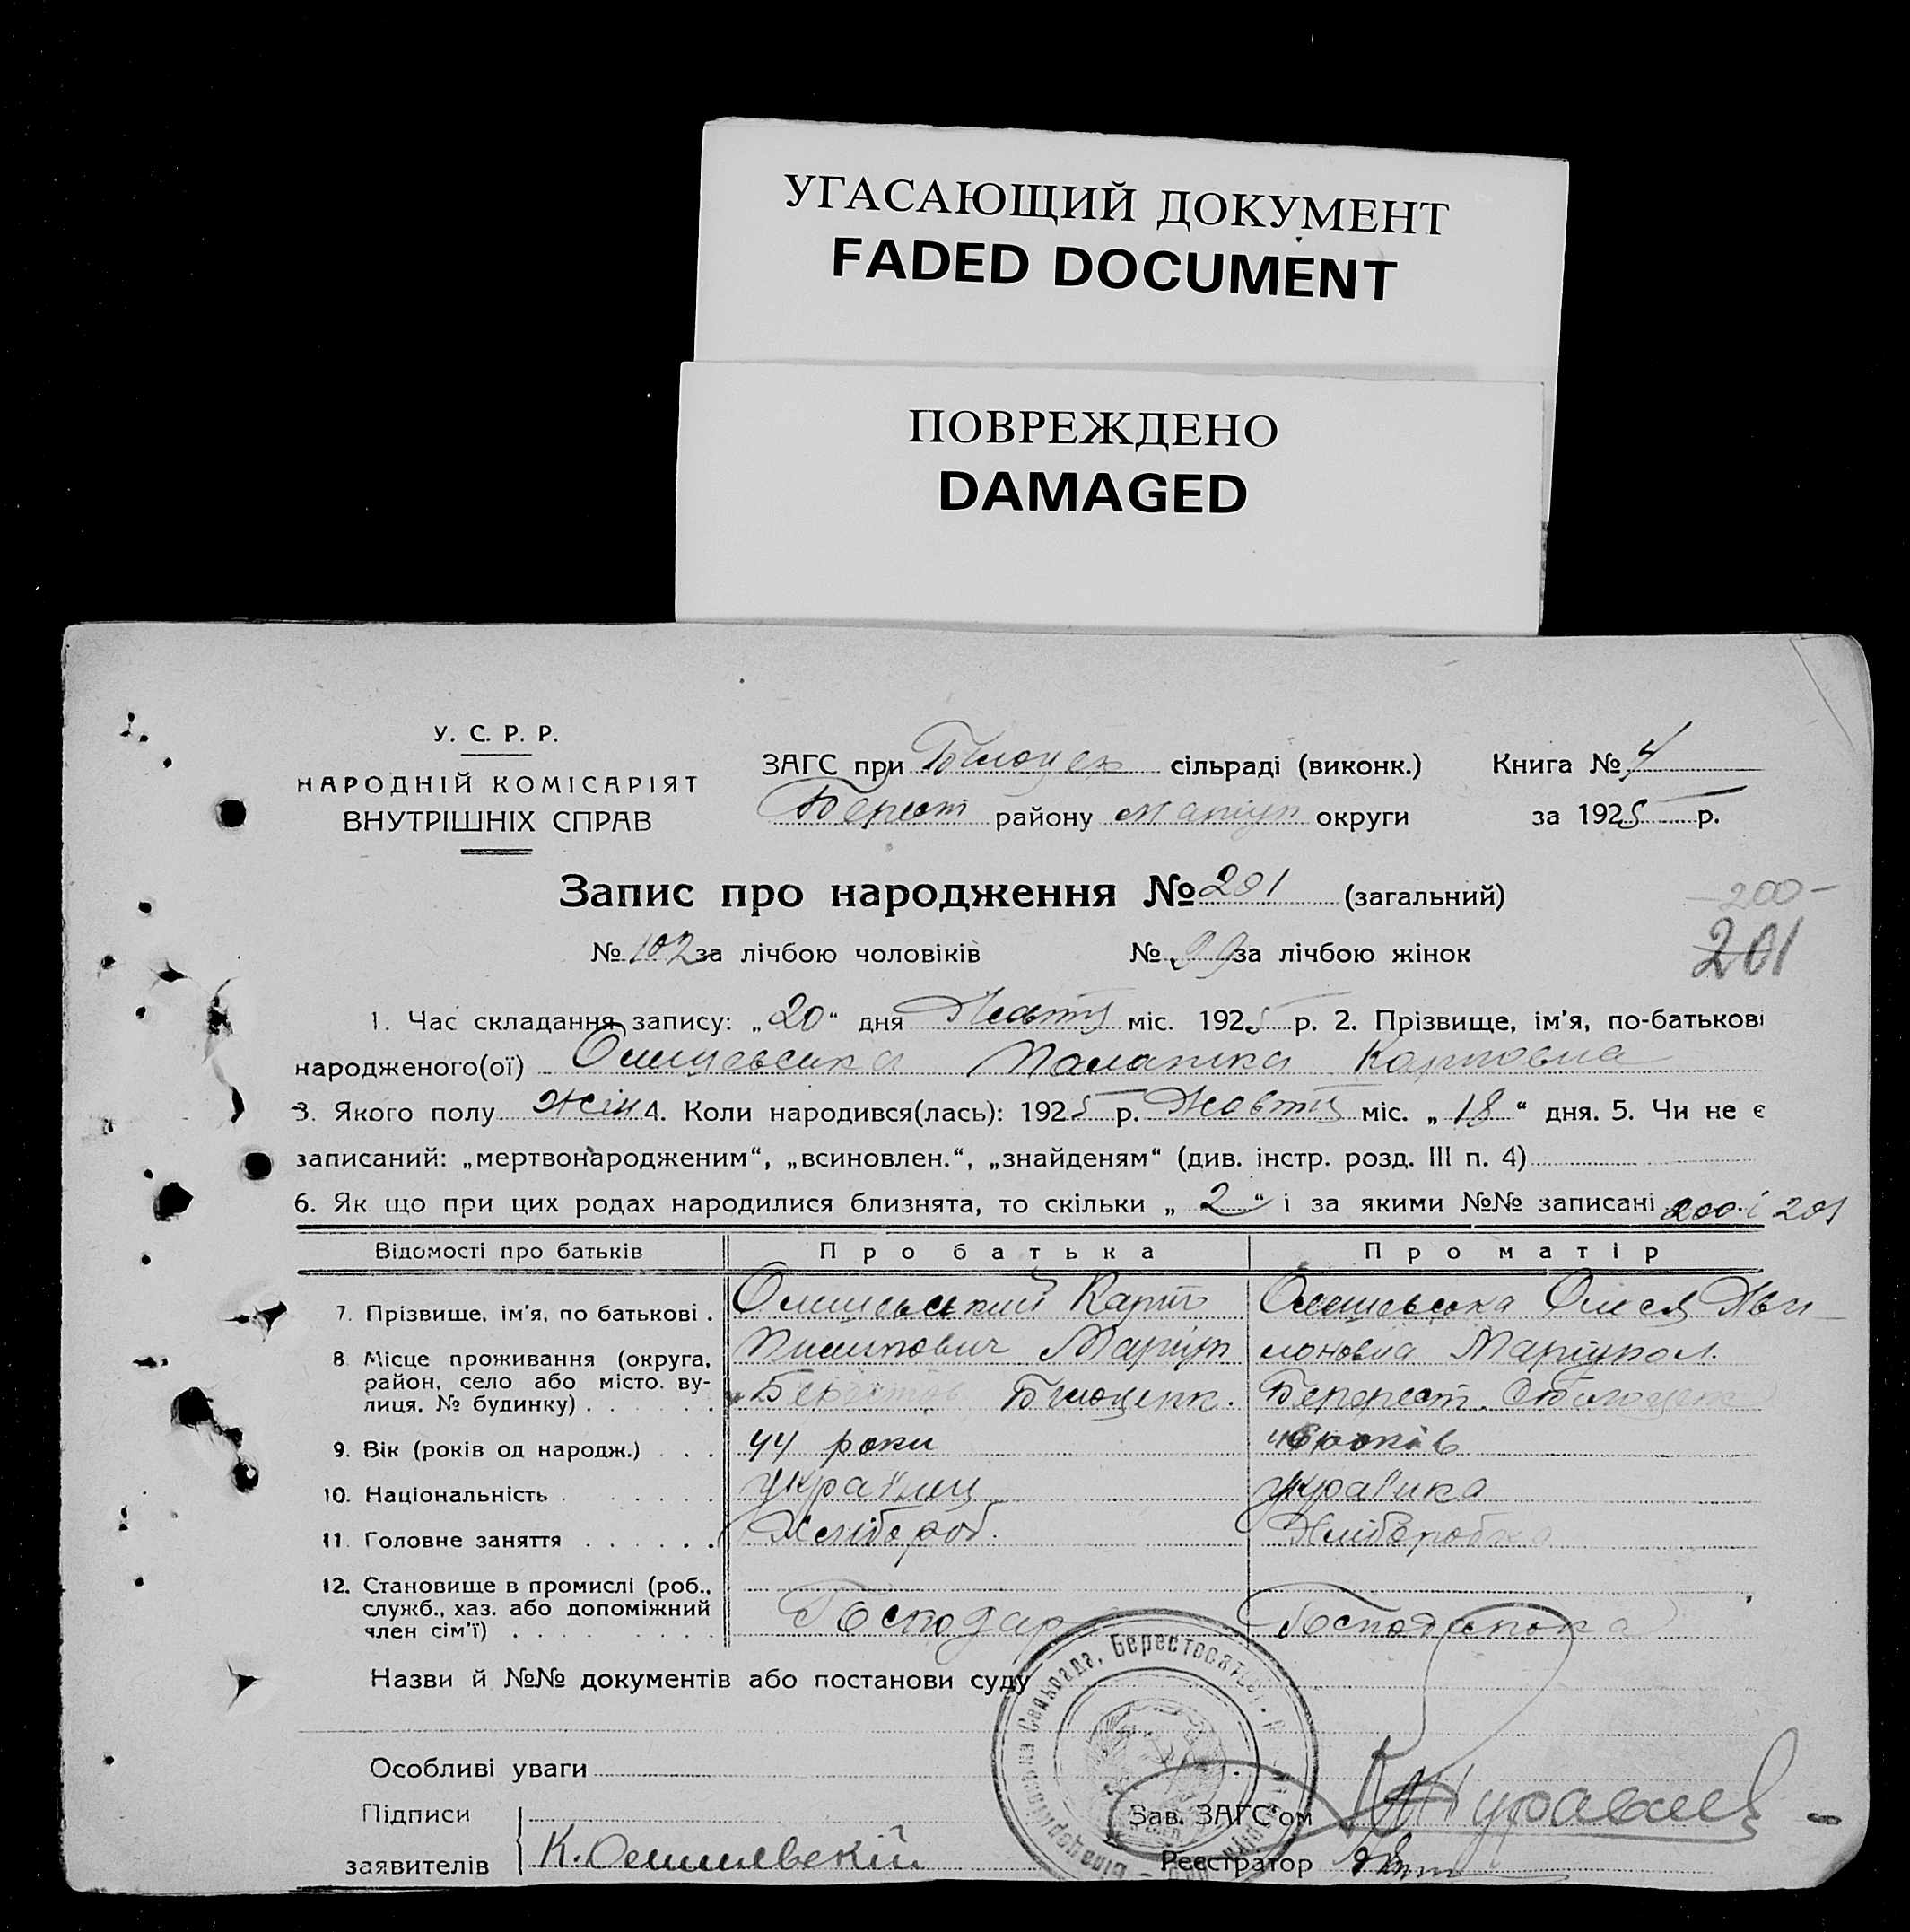 УГАСАЮЩИЙ ДОКУМЕНТ
FADED DOCUMENT
ПОВРЕЖДЕНО
DAMAGED
У. С. Р. Р.
НАРОДНІЙ КОМІСАРІЯТ
ВНУТРІШНІХ СПРАВ
ЗАГС при Білоцерк сільраді (виконк.) Книга № 4
Берест району Маріуп округи за 1925 р.
Запис про народження № 201 (загальний)
200
201
№ 102 за лічбою чоловіків № 99 за лічбою жінок
1. Час складання запису: „20“ дня Жовтн міс. 1925 р. 2. Прізвище, ім'я, по-батькові
народженого(ої) Палашка Карповна
3. Якого полу жін 4. Коли народився(лась): 1925 р. Жовтн міс. „18“ дня. 5. Чи не є
записаний: „мертвонародженим“, „всиновлен.“, „знайденям“ (див. інстр. розд. III п. 4)
6. Як що при цих родах народилися близнята, то скільки „2“ і за якими №№ записані 200 і 201
Відомості про батьків Про батька Про матір
7. Прізвище, ім'я, по батькові . Карпо
8. Місце проживання (округа, район, село або місто, вулиця, № будинку) . Пилипович Маріуп Маріупол.
9. Вік (років од народж.) 44 роки років
10. Національність українц українка
11. Головне заняття Хлібороб. Хліборобка
12. Становище в промислі (роб., служб., хаз. або допоміжний член сім'ї) Господар
Назви й №№ документів або постанови суду
Особливі уваги
Підписи
заявителів К.
Зав. ЗАГС'ом
Реєстратор